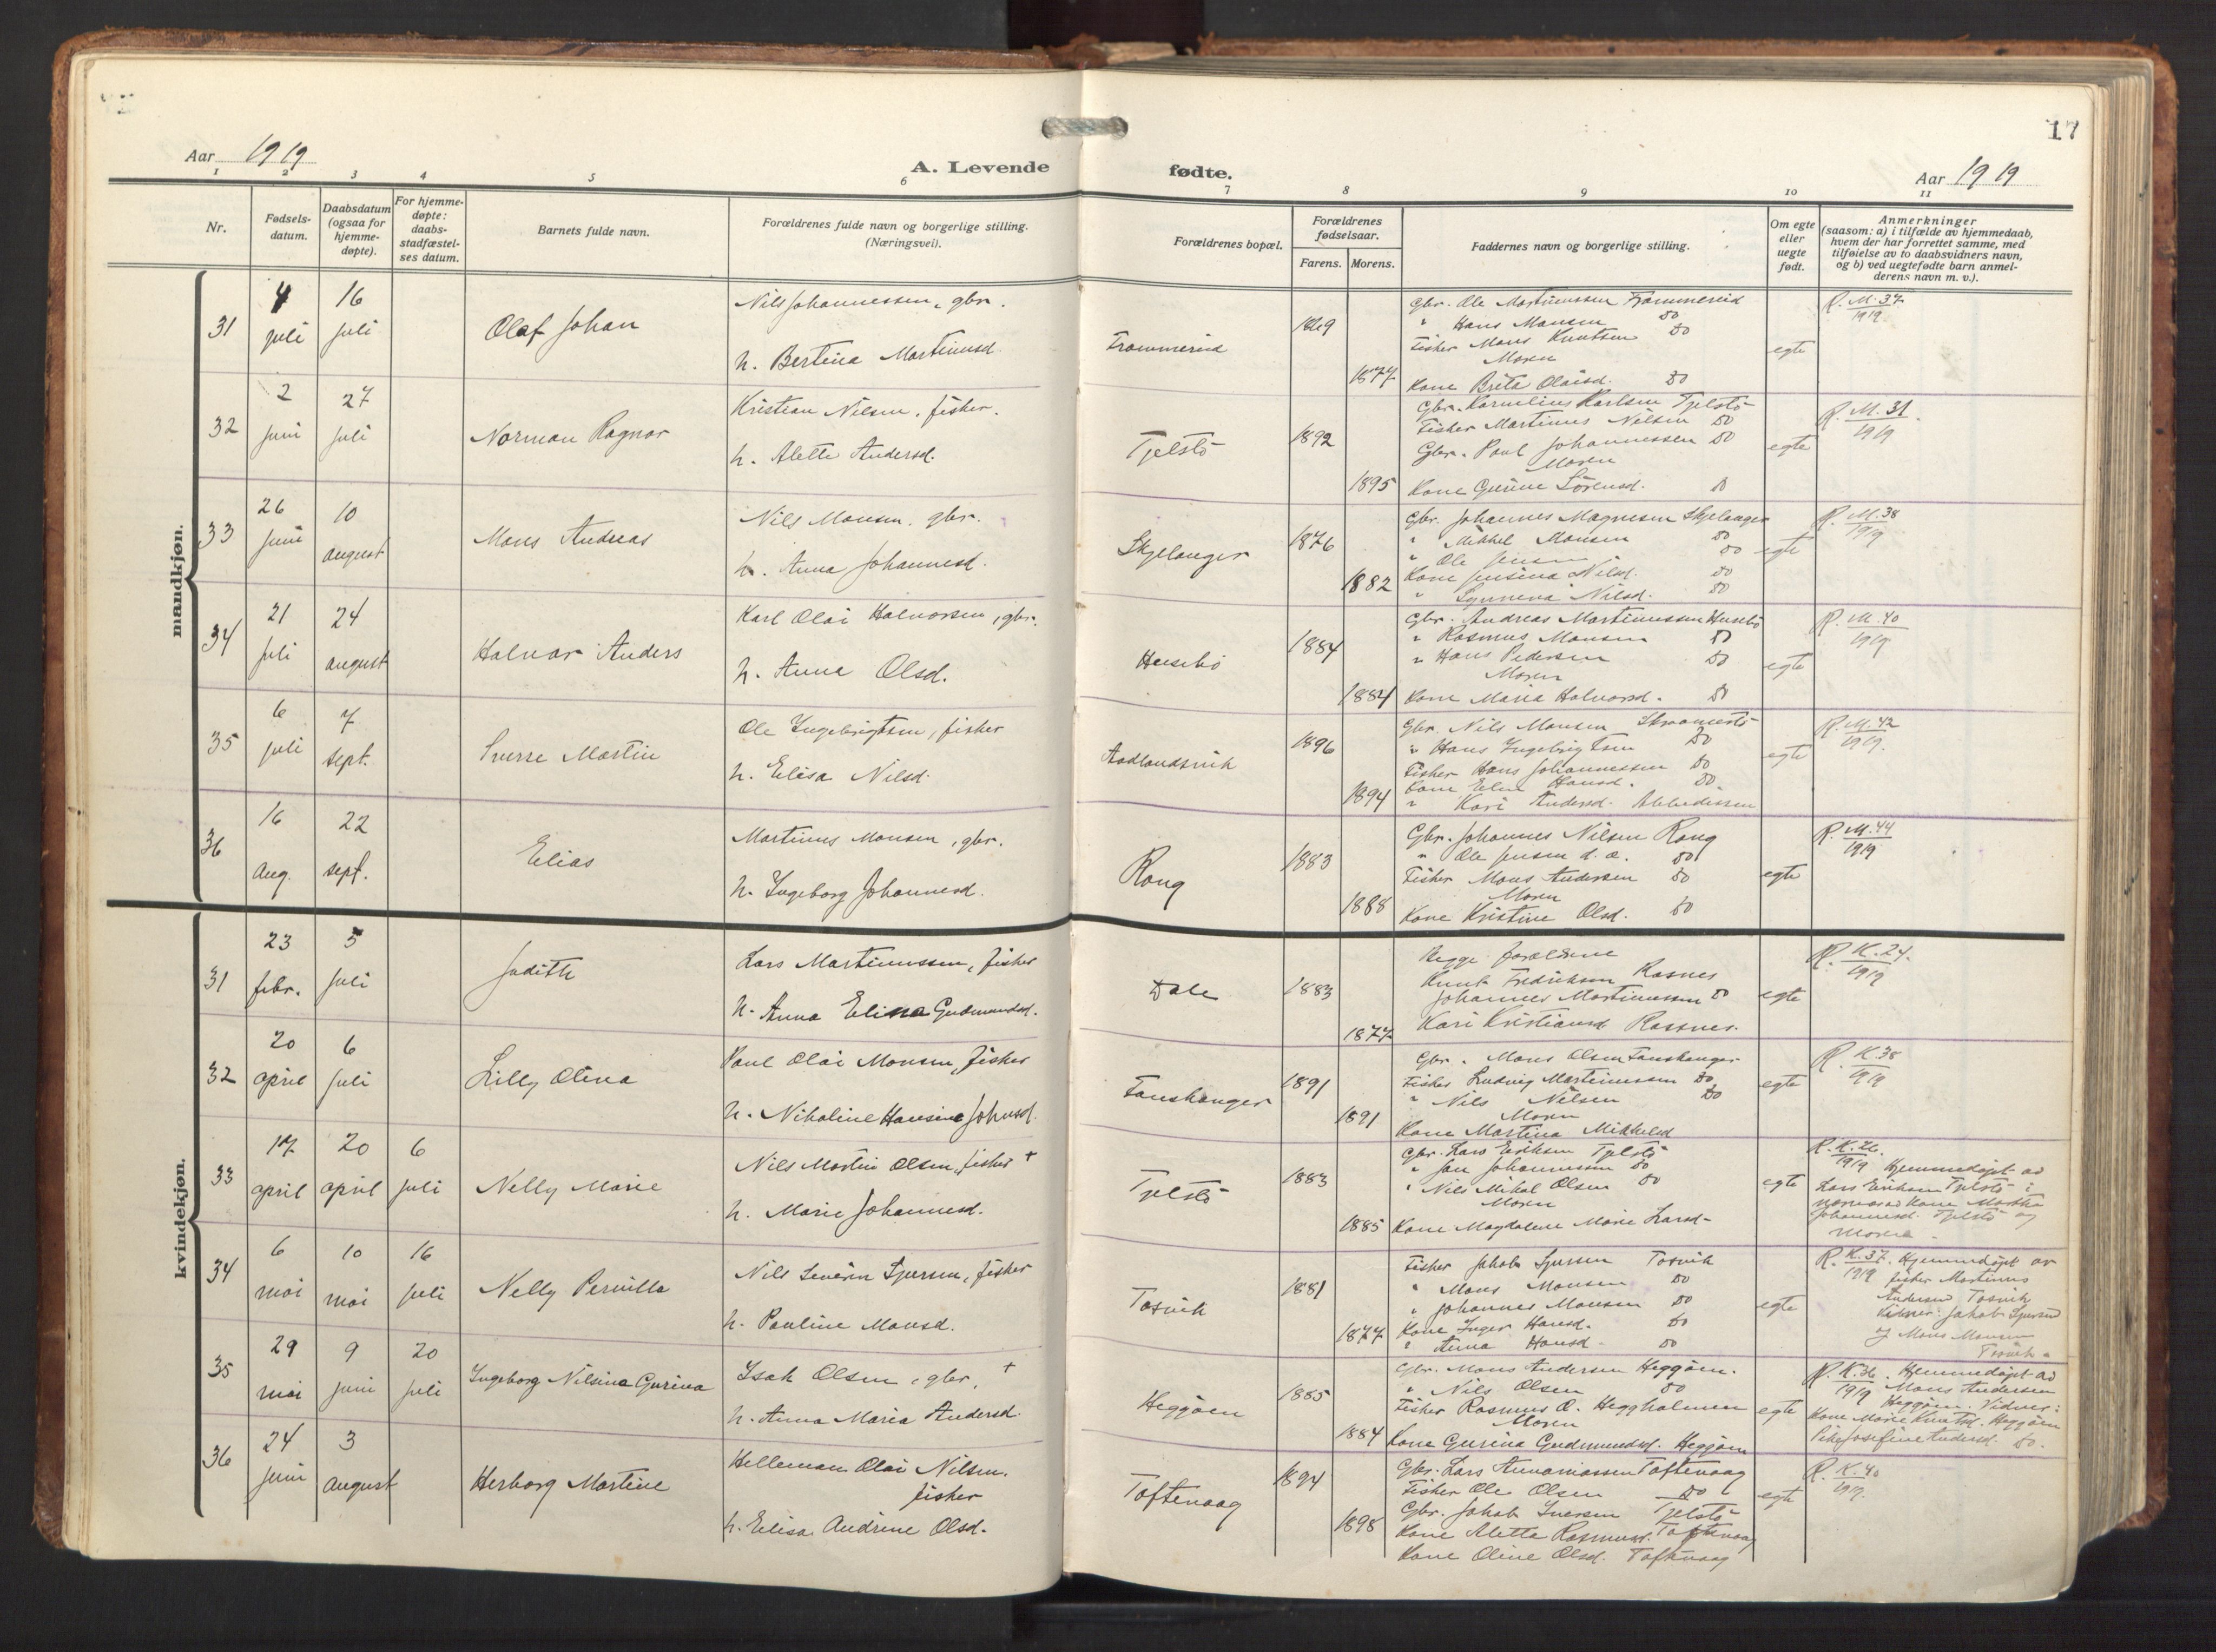 17
Aar 1919
A. Levende fødte.
Aar 1919
1 2 3 4 5 6 7 8 9 10 11
Nr.
Fødsels-
datum.
Daabsdatum
(ogsaa for
hjemme-
døpte).
For hjemme-
døpte:
daabs-
stadfæstel-
ses datum.
Barnets fulde navn.
Forældrenes fulde navn og borgerlige stilling.
(Næringsvei).
Forældrenes bopæl.
Forældrenes
fødselsaar.
Farens. Morens.
Faddernes navn og borgerlige stilling.
Om egte
eller
uegte
født.
Anmerkninger
(saasom: a) i tilfælde av hjemmedaab,
hvem der har forrettet samme, med
tilføielse av to daabsvidners navn,
og b) ved uegtefødte barn anmel-
derens navn m. v.).
mandkjøn.
31
4 juli
16 juli
Olaf Johan
Nils Johannessen, gbr.
h. Bertina Martinusd.
1869
1877
Gbr. Ole Martinussen
" Hans Monsen do
Fisker Mons Knutsen do
Moren
Kone Brita Olaisd. do
egte
R. M. 37
1919
32
2 juni
27 juli
Norman Ragnar
Kristian Nilsen, fisker.
h. Alette Andersd.
Tjelstö
1892
1895
Gbr. Kornelius Karlsen Tjelstö
Fisker Martinus Nilsen do
Gbr. Paul Johannessen do
Moren
Kone Gurine Sörensd. do
egte
R. M. 31
1919
33
26 juni
10 august
Mons Andreas
Nils Monsen, gbr.
h. Anna Johannesd.
Skjelanger
1876
1882
Gbr. Johannes Magnesen Skjelanger
" Mikkel Monsen do
" Ole Jensen do
Kone Jensina Nilsd. do
" Synneva Nilsd. do
egte
R. M. 38
1919
34
21 juli
24 august
Halvor Anders
Karl Olai Halvorsen, gbr.
h. Anna Olsd.
Husebö
1884
1884
Gbr. Andreas Martinussen Husebö
" Rasmus Monsen do
" Hans Pedersen do
Moren
Kone Maria Halvorsd. do
egte
R. M. 40
1919
35
6 juli
7 sept.
Sverre Martin
Ole Ingebrigtsen, fisker
h. Elisa Nilsd.
Aadlandsvik
1896
1894
Gbr. Nils Monsen
" Hans Ingebrigtsen do
Fisker Hans Johannessen do
Kone Elen Hansd. do.
" Kari Andersd.
egte
R. M. 42
1919.
36
16 aug.
22 sept.
Elias
Martinus Monsen, gbr.
h. Ingeborg Johannesd.
Rong
1883
1888
Gbr. Johannes Nilsen Rong
" Ole Jensen d. a. do
Fisker Mons Andersen do
Moren
Kone Kristine Olsd. do
egte
R. M. 44
1919
kvindekjøn.
31
23 febr.
5 juli
Judith
Lars Martinussen, fisker
h. Anna Elina Gudmundsd.
Dale
1883
1877
Begge forældrene
Knut Fredriksen Rasnes
Johannes Martinussen do
Kari Kristiansd Rassnes.
egte
R. K. 24.
1919
32
20 april
6 juli
Lilly Olena
Paul Olai Monsen, fisker
h. Nikoline Hansine Johnsd.
Fonskanger
1891
1891
Gbr. Mons Olsen Fonskanger
Fisker Ludvig Martinussen do
" Nils Nilsen do
Moren
Kone Martina Mikkelsd
egte
R. K. 38
1919
33
17 april
20 april
6 juli
Nelly Marie
Nils Martin Olsen, fisker +
h. Marie Johannesd.
Tjelstö
1883
1885
Gbr. Lars Eriksen Tjelstö
" Jan Johannessen do
" Nils Mikal Olsen do
Moren
Kone Magdalene Marie Larsd-
egte
R. K. 26.
1919 Hjemmedöpt av
Lars Eriksen Tjelstö i
nærvær av Kone Martha
Johannesd. Tjelstö og
Moren -
34
6 mai
10 mai
16 juli
Nelly Pernilla
Nils Severin Sjursen, fisker
h. Pauline Monsd.
Tosvik
1881
1877
Fisker Jakob Sjursen Tosvik
" Mons Monsen do
" Johannes Monsen do
Kone Inger Hansd. do
" Anna Hansd. do
egte
R. K. 37. Hjemmedöpt av
1919 fisker Martinus
Andersen Tosvik
Vidner: Jakob Sjursen
og Mons Monsen
Tosvik.
35
29 mai
9 juni
20 juli
Ingeborg Nilsine Gurina
Isak Olsen, gbr. +
h. Anna Maria Andersd.
Heggöen
1885
1884
Gbr. Mons Andersen Heggöen.
" Nils Olsen do
Fisker Rasmus O. Heggholmen
Moren
Kone Gurina Gudmundsd. Heggöen
egte
R. K. 36. Hjemmedöpt av
1919 Mons Andersen
Heggöen. Vidner:
Kone Marie Knutsd. Heggöen
Pike Josefine Andersd. do.
36
24 juni
3 august
Herborg Martine
Helleman Olai Nilsen.
fisker
h. Elisa Andrine Olsd.
Toftevaag
1894
1898
Gbr. Lars Annaniassen Toftevaag
Fisker Ole Olsen do
Gbr. Jakob Iversen Tjelstö
Kone Aletta Rasmusd. Toftevaag
Kone Oline Olsd. Toftevaag
egte
R. K. 40
1919.